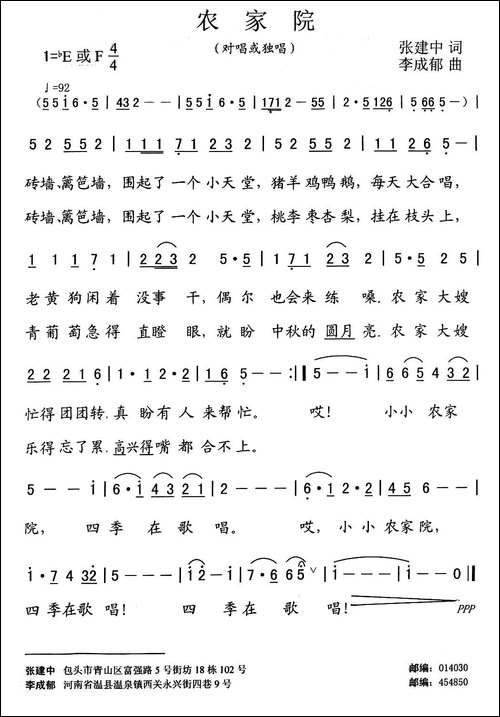 农家院
（对唱或独唱）
1=♭E 或 F 4/4
张建中 词
李成郁 曲
♩=92
(5 5 i 6·5 | 432 2 - - | 5 5 i 6·5 | 171 2 - 55 | 2·5 126 | 5 665 - ) |
52 552 | 111 71 232 | 52 552 | 111 71 232 | 11 212 6 5 - |
砖墙、篱笆墙，围起了一个小天堂，猪羊鸡鸭鹅，每天大合唱，
砖墙、篱笆墙，围起了一个小天堂，桃李枣杏梨，挂在枝头上，
1 1 1 7 1 | 223 2 5·5 | 1 1 7 1 23 2 | 5·5 2 5 5
老黄狗闲着没事干，偶尔也会来练嗓.农家大嫂
青葡萄急得直瞪眼，就盼中秋的圆月亮.农家大嫂
22 2 2 1 6 | 1·1 2·2 | 1 6 5 - - :‖ 5 - - i | 6·5 4 3 32 |
忙得团团转.真盼有人来帮忙。哎！小小农家
乐得忘了累.高兴得嘴都合不上。
5 - - i | 6·i 43 21 | 2 - - - | 6·i 2·2 | 6·5 45 6 |
院，四季在歌唱。哎，小小农家院，
i·7 4 32 | 5 - - - | i 2 - i | 7·6 6 5 ∨ | i - - - | i - - 0 ‖
四季在歌唱！四季在歌唱！
PPP
张建中 包头市青山区富强路5号街坊18栋102号 邮编：014030
李成郁 河南省温县温泉镇西关永兴街四巷9号 邮编：454850